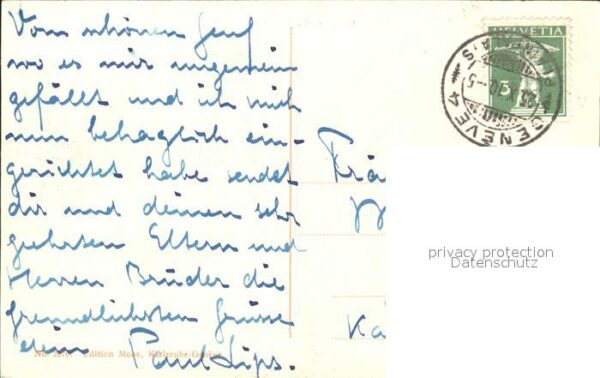 Vom schönen Genf
wo es mir ungemein
gefällt und ich mich
nun behaglich ein-
gerichtet habe sendet
dir und deinen sehr
geehrten Eltern und
Herren Brüder die
freundlichsten Grüsse
dein Paul Lips.
Edition Moos, Karlsruhe-Genève
HELVETIA
5
GENÈVE 4
Frä
privacy protection
Datenschutz